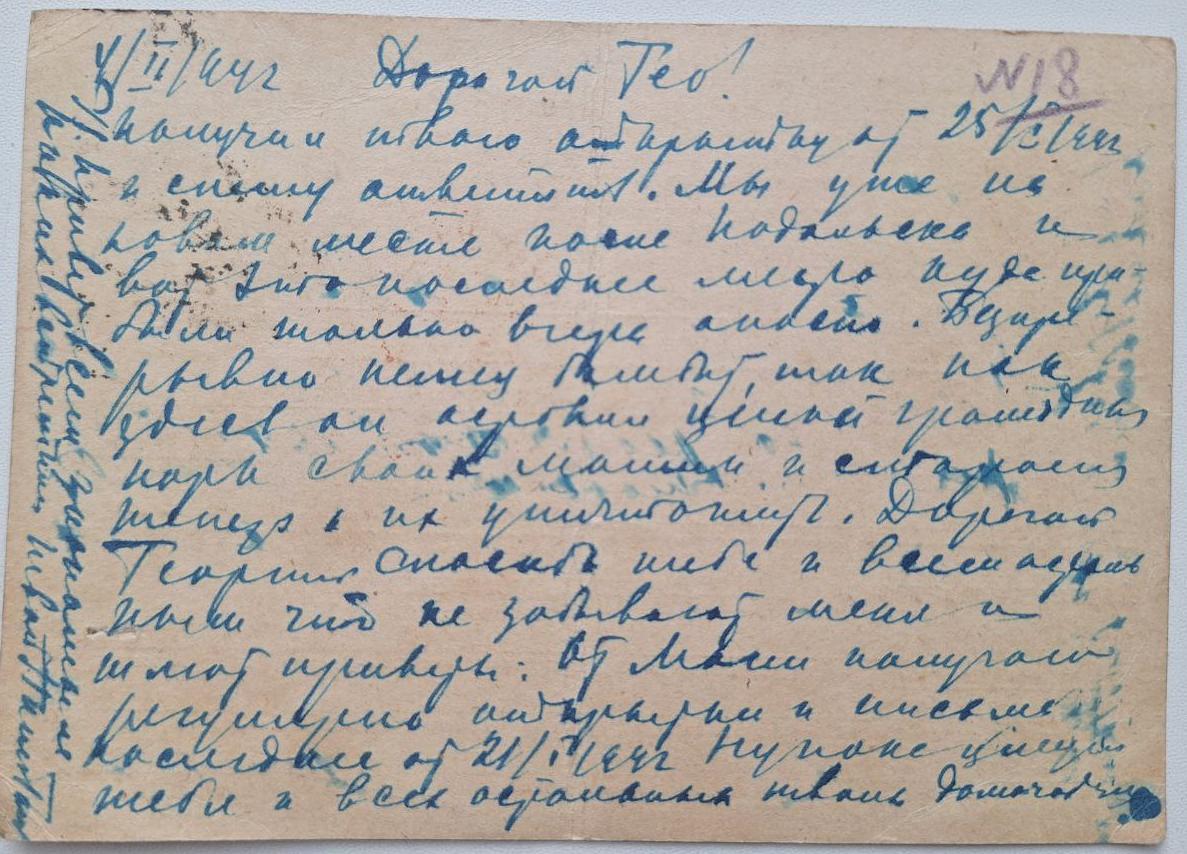 4/II/44г Дорогая Гео! N18
Получил твою открытку от 25/I/44г
и спешу ответить. Мы уже на
новом месте после Подольска и
вот это последнее место куда при-
были только вчера опасно. Беспре-
рывно немец бомбит, так как
здесь он оставил целый громадный
парк своих машин и старается
теперь их уничтожить. Дорогая
Георгия спасибо тебе и всем осталь
ным что не забывают меня и
шлют приветы. От Маши получаю
регулярно открытки и письма
последнее от 21/I/44г Ну пока целую
тебя и всех остальных твоих домочадцев
привет всем знакомым